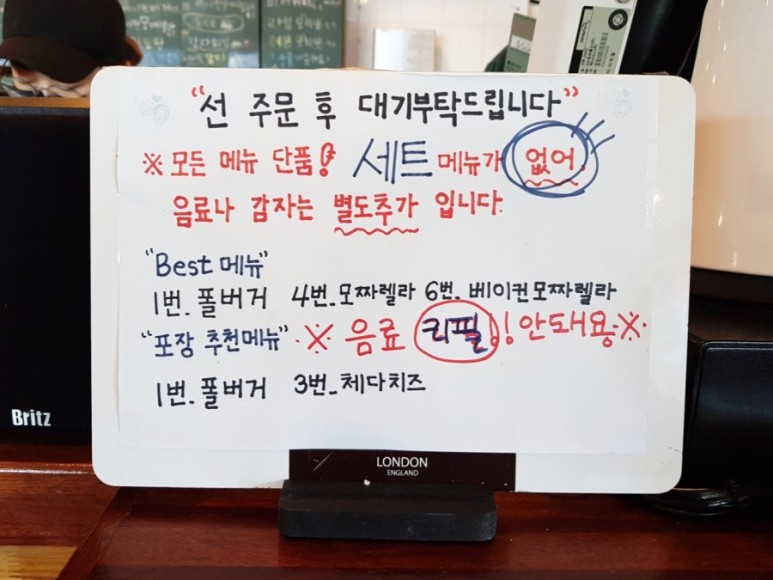 "선 주문 후 대기부탁드립니다"
※ 모든 메뉴 단품! 세트 메뉴가 없어.
음료나 감자는 별도추가 입니다.
"Best 메뉴"
1번_폴버거 4번_모짜렐라 6번_베이컨모짜렐라
"포장 추천메뉴" ※ 음료 리필!! 안돼용※
1번_폴버거 3번_체다치즈
Britz
LONDON
ENGLAND